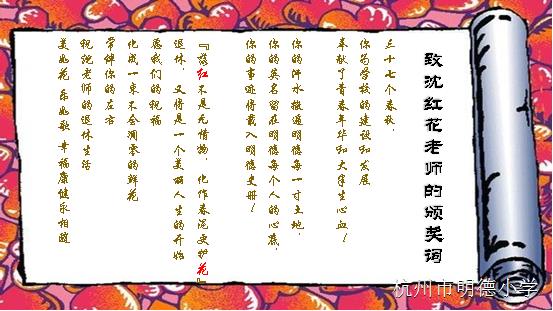 致沈红花老师的颁奖词
三十七个春秋，
你为学校的建设和发展
奉献了青春年华和大半生心血！
你的汗水撒遍明德每一寸土地，
你的英名留在明德每个人的心底，
你的事迹将载入明德史册！
『落红不是无情物，化作春泥更护花』
退休，又将是一个美丽人生的开始
愿我们的祝福
化成一束不会凋零的鲜花
常伴你的左右
祝沈老师的退休生活
美如花 乐如歌 幸福康健永相随
杭州市明德小学